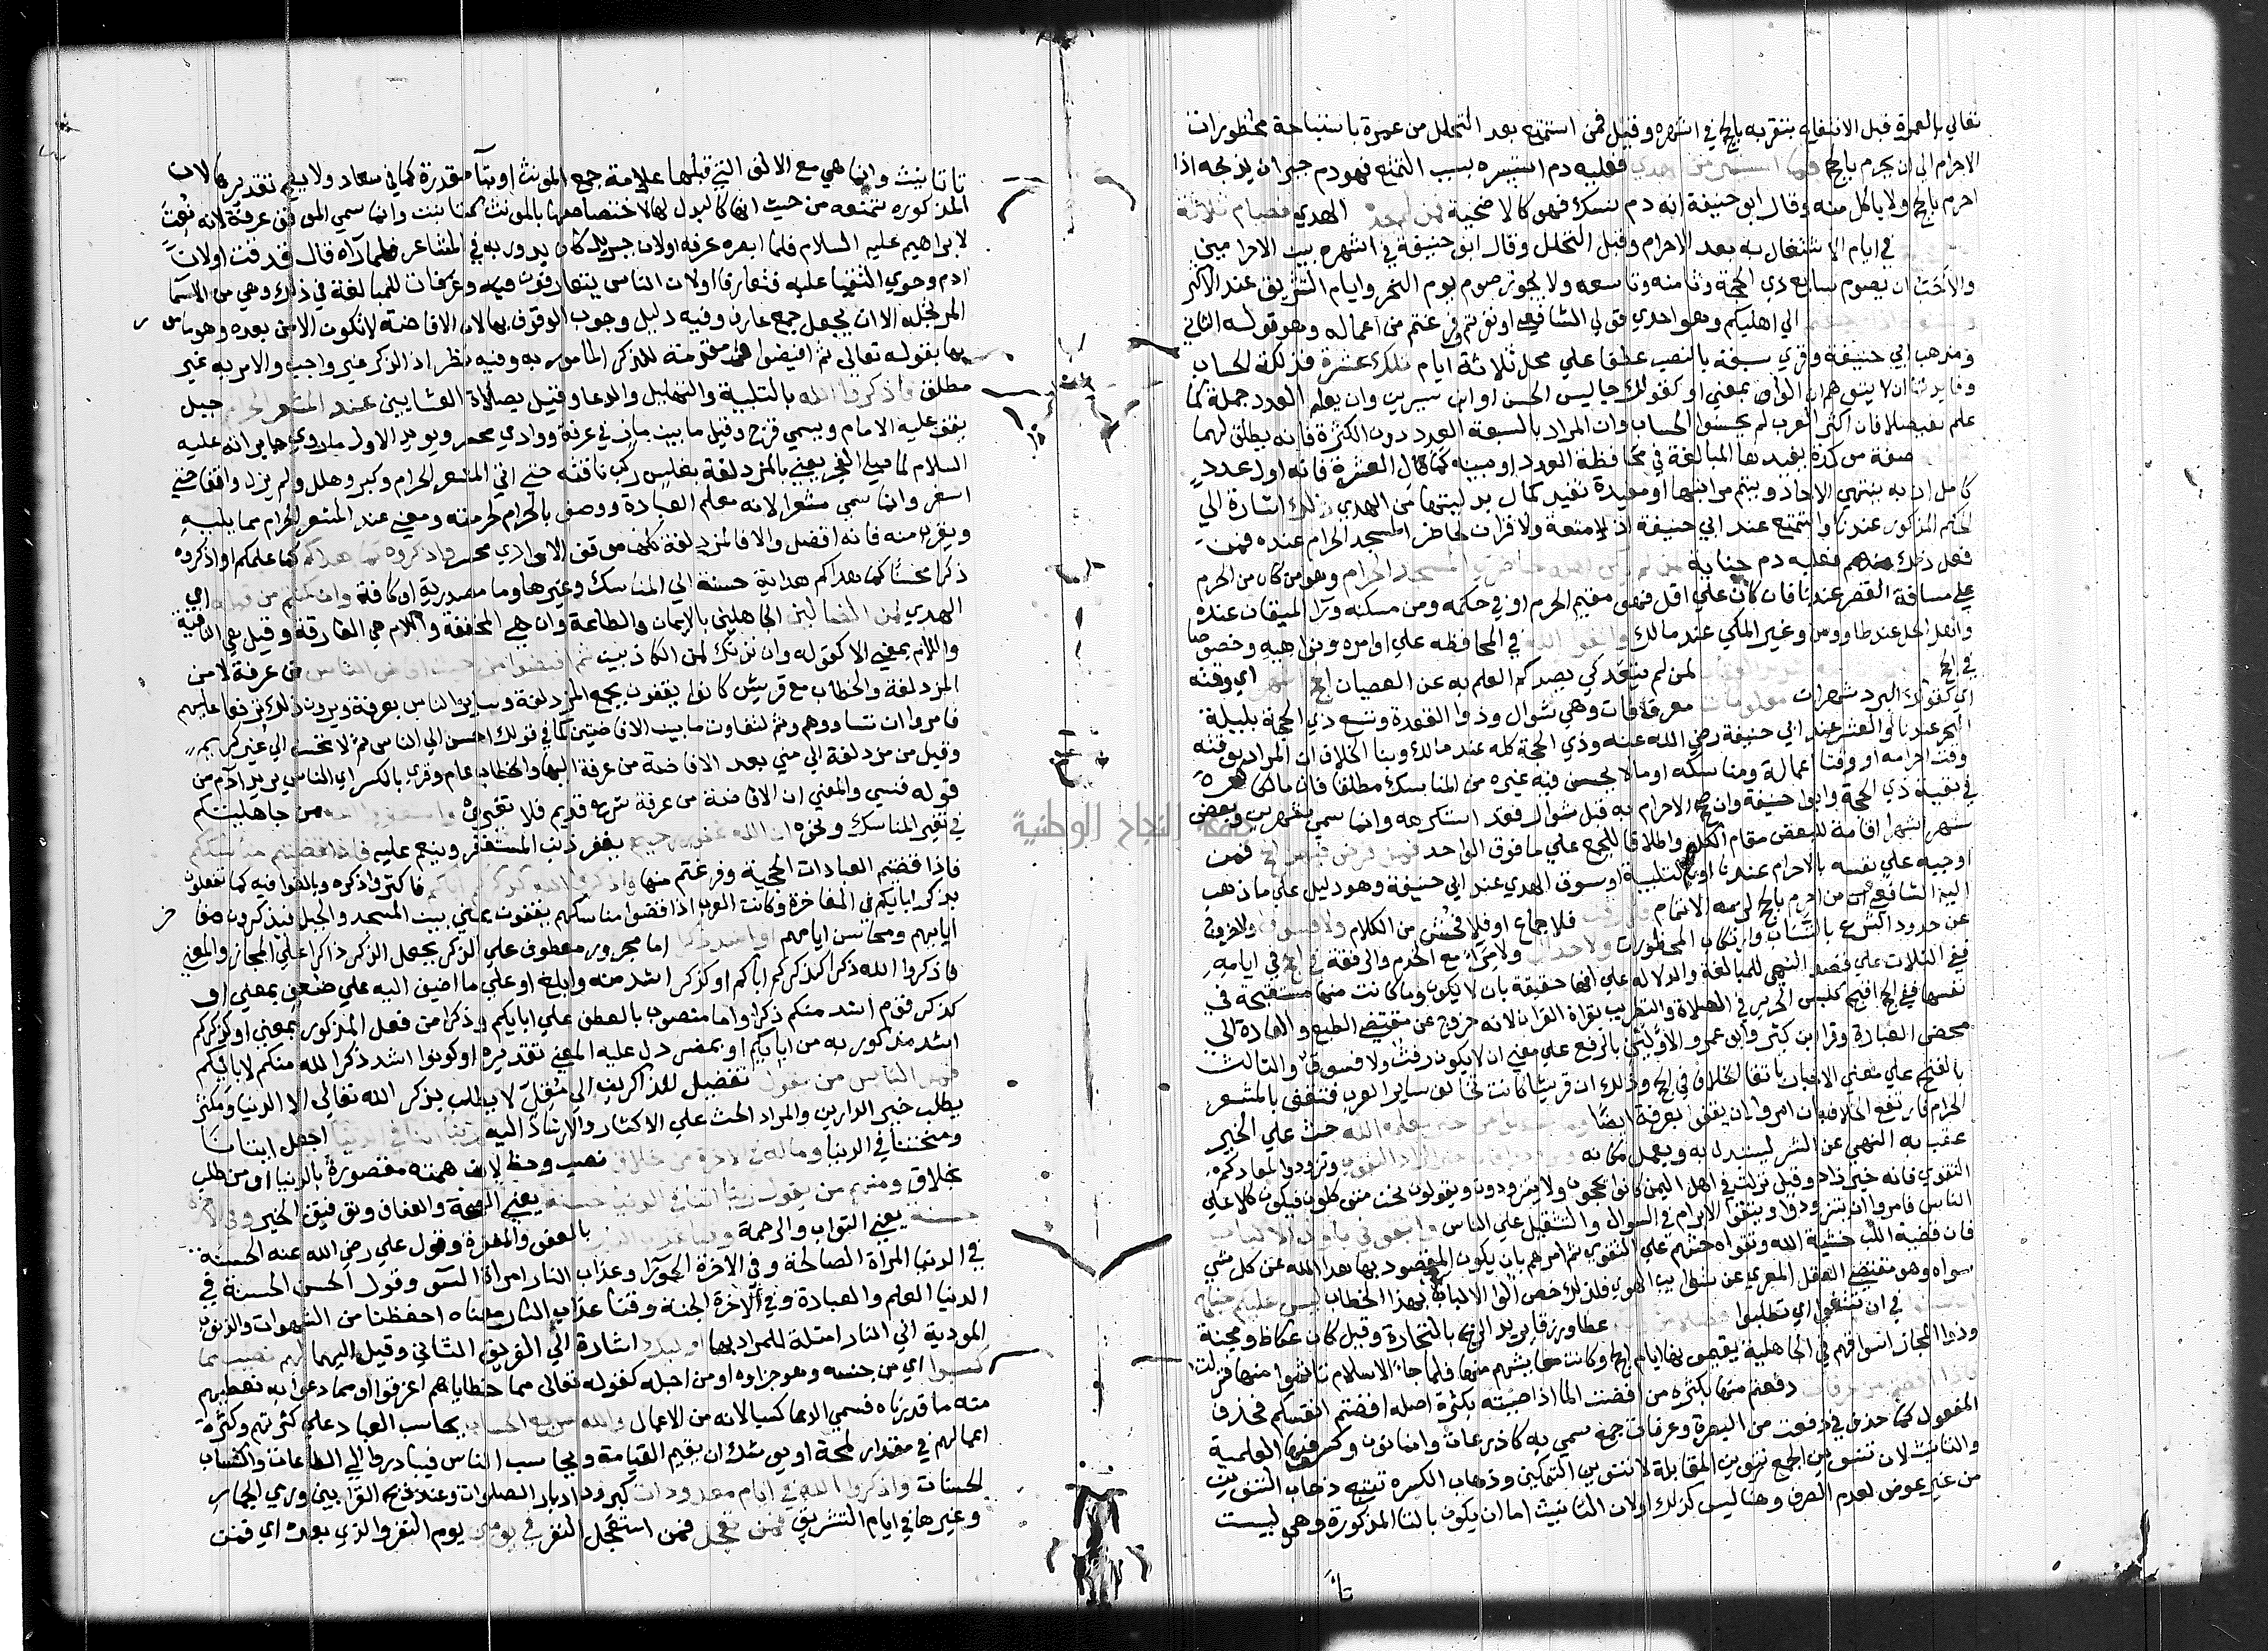 تعالي بالعمرة قبل الانتفاع بتقربه بالحج في اشهره وقيل فمن استمتع بعد التحلل من عمرة باستباحة محظورات
الاحرام الي ان يحرم بالحج فما استيسر من الهدي فعليه دم استيسره بسبب التمتع فهو دم جبران يذبحه اذا
احرم بالحج ولا ياكل منه وقال ابو حنيفة انه دم نسك فهو كالاضحية فمن لم يجد الهدي فصيام ثلاثة
في ايام الاشتغال به بعد الاحرام وقبل التحلل وقال ابو حنيفة في اشهره بين الاحرامين
والاحب ان يصوم سابع ذي الحجة وثامنه وتاسعه ولا يجوز صوم يوم النحر وايام التشريق عند الاكثر
وسبعة اذا رجعتم الي اهليكم وهو احدي قولي الشافعي او نفرتم وفرغتم من اعماله وهو قوله الثاني
ومذهب ابي حنيفة وقري سبعة بالنصب عطفا علي محل ثلاثة ايام تلك عشرة فذلكة الحساب
وفايدتها ان لا يتوهم ان الواو بمعني او كقولك جاليس الحسن او ابن سيرين وان يعلم العدد جملة كما
علم تفصيلا فان اكثر العرب لم يحسنوا الحساب وان المراد بالسبعة العدد دون الكثرة فانه يطلق لهما
صفة موكدة يفيدها المبالغة في محافظة العدد او مبينة كمال العشرة فانه اول عدد
كامل اذ به ينتهي الاحاد ويتم مراتبها او مقيدة تفيد كمال بدليتها من الهدي ذلك اشارة الي
الحكم المذكور عندنا والتمتع عند ابي حنيفة اذ لا متعة ولا قران لحاضر المسجد الحرام عنده فمن
فعل ذلك منهم فعليه دم جناية لمن لم يكن اهله حاضري المسجد الحرام وهو من كان من الحرم
علي مسافة القصر عندنا فان كان علي اقل فهو مقيم الحرم او في حكمه ومن مسكنه ورا الميقات عنده
واهل الحل عند طاووس وغير المكي عند مالك واتقوا الله في المحافظه علي اوامره ونواهيه وخصوصا
في الحج لمن لم يتقه كي يصدكم العلم به عن العصيان الحج اشهر اي وقته
اي كقولك البرد شهران معلومات معروفات وهي شوال وذو القعدة وتسع ذي الحجة بليلة
النحر عندنا والعشر عند ابي حنيفة رضي الله عنه وذي الحجة كله عند مالك وبنا الخلاف ان المراد بوقته
وقت احرامه او وقت اعماله ومناسكه او ما لا يحسن فيه غيره من المناسك مطلقا فان مالكا كره
في بقية ذي الحجة وابو حنيفة وان صح الاحرام به قبل شوال فقد استكرهه وانما سمي شهرين وبعض
شهر اشهرا اقامة للبعض مقام الكل واطلاقا للجمع علي ما فوق الواحد فمن فرض فيهن الحج فمن
اوجبه علي نفسه بالاحرام عندنا او بالتلبية او سوق الهدي عند ابي حنيفة وهو دليل علي ما ذهب
اليه الشافعي ان من احرم بالحج لزمه الاتمام فلا رفث فلا جماع او فلا فحش من الكلام ولا فسوق ولا خروج
عن حدود الشرع بالسباب وارتكاب المحظورات ولا جدال ولا مراء مع الخدم والرفقة في الحج في ايامه
نفي الثلاث علي قصد النهي للمبالغة والدلالة علي انها حقيقة بان لا يكون وما كانت منها مستقبحة في
نفسها ففي الحج اقبح كلبس الحرير في الصلاة والتطريب بقراة القران لانه خروج عن مقتضي الطبع والعادة الي
محض العبادة وقرا ابن كثير وابن عمرو الاولين بالرفع علي معني لا يكون رفث ولا فسوق والثالث
بالفتح علي معني الاخبار بانتفا الخلاف في الحج وذلك ان قريشا كانت تخالف ساير العرب فتقف بالمشعر
الحرام فارتفع الخلاف بان امروا ان يقفوا بعرفة ايضا وما تفعلوا من خير يعلمه الله حث علي الخير
عقب به النهي عن الشر ليستدل به ويعمل مكانه وتزودوا فان خير الزاد التقوي وتزودوا لمعادكم
التقوي فانه خير زاد وقيل نزلت في اهل اليمن كانوا يحجون ولا يتزودون ويقولون نحن متوكلون فيكون كلا علي
الناس فامروا ان يتزودوا ويتقوا الابرام في السوال والتثقيل علي الناس واتقون يا اولي الالباب
فان قضية اللب خشية الله وتقواه حثهم علي التقوي ثم امرهم بان يكون المقصود بها هو الله عن كل شي
سواه وهو مقتضي العقل المعري عن شوايب الهوي فلذلك خص اولوا الالباب بهذا الخطاب ليس عليكم جناح
في ان تبتغوا اي تطلبوا فضلا من ربكم عطا ورزقا يريد الربح بالتجارة وقيل كان عكاظ ومجنة
وذوا المجاز اسواقهم في الجاهلية يقيمونها ايام الحج وكانت معايشهم منها فلما جاء الاسلام تاثموا منها فنزلت
فاذا افضتم من عرفات دفعتم منها بكثرة من افضت الما اذا صببته بكثرة اصله افضتم انفسكم فحذف
المفعول كما حذف في دفعت من البصرة وعرفات جمع سمي به كاذرعات وانما نون وكسر وفيه العلمية
والتانيث لان تنوين الجمع تنوين المقابلة لا تنوين التمكين وذهاب الكسره تبع ذهاب التنوين
من غير عوض لعدم الصرف وهنا ليس كذلك او لان التانيث اما ان يكون بالتا المذكورة وهي ليست
تا
تا تانيث وانما هي مع الالف التي قبلها علامة جمع المونث او بتا مقدرة كما في سعاد ولا يصح تقديرها لان
المذكوره تمنعه من حيث انها كالبدل لها لاختصاصها بالمونث كتا بنت وانما سمي الموقف عرفة لانه نعت
لابراهيم عليه السلام فلما ابصره عرفه او لان جبريل كان يدور به في المشاعر فلما رآه قال قد عرفت او لان
ادم وحوي التقيا عليه فتعارفا او لان الناس يتعارفون فيه وعرفات للمبالغة في ذلك وهي من الاسما
المرتجلة الا ان يجعل جمع عارف وفيه دليل وجوب الوقوف بها لان الافاضة لا تكون الا من بعده وهو مامور
بها بقوله تعالي ثم افيضوا او مقدمة للذكر المامور به وفيه نظر اذ الذكر غير واجب والامر به غير
مطلق فاذكروا الله بالتلبية والتهليل والدعا وقيل بصلاة العشايين عند المشعر الحرام جبل
يقف عليه الامام ويسمي قزح وقيل ما بين مازمي عرفة ووادي محسر ويويد الاول ما روي جابر انه عليه
السلام لما صلي الفجر يعني بالمزدلفة بغلس ركب ناقته حتي اتي المشعر الحرام وكبر وهلل ولم يزل واقفا حتي
اسفر وانما سمي مشعرا لانه معلم العبادة ووصف بالحرام لحرمته ومعني عند المشعر الحرام مما يليه
ويقرب منه فانه افضل والا فالمزدلفة كلها موقف الا وادي محسر واذكروه كما هداكم كما علمكم او اذكروه
ذكرا حسنا كما هداكم هداية حسنة الي المناسك وغيرها وما مصدرية او كافة وان كنتم من قبله اي
الهدي لمن الضالين الجاهلين بالايمان والطاعة وان هي المخففة واللام هي الفارقة وقيل هي النافية
واللام بمعني الا كقوله وان نظنك لمن الكاذبين ثم افيضوا من حيث افاض الناس من عرفة لا من
المزدلفة والخطاب مع قريش كانوا يقفون بجمع المزدلفة وساير الناس بعرفة ويرون ذلك ترفعا عليهم
فامروا ان تساووهم وثم لتفاوت ما بين الافاضتين كما في قولك احسن الي الناس ثم لا تحسن الي غير كريم
وقيل من مزدلفة الي مني بعد الافاضة من عرفة اليها والخطاب عام وقري بالكسر اي الناس يريد ادم من
قوله فنسي والمعني ان الافاضة من عرفة شرع قديم فلا تغيروه واستغفروا الله من جاهليتكم
في تغير المناسك ونحوه ان الله غفور رحيم يغفر ذنب المستغفر وينعم عليه فاذا قضيتم مناسككم
فاذا قضيتم العبادات الحجية وفرغتم منها فاذكروا الله كذكركم اباكم فاكثروا ذكره وبالغوا فيه كما تفعلون
بذكر ابايكم في المفاخرة وكانت العرب اذا قضوا مناسكهم يقفون بمني بين المسجد والجبل فيذكرون مفا
ابايهم ومحاسن ايامهم او اشد ذكرا اما مجرور معطوف علي الذكر بجعل الذكر ذاكرا علي المجاز والمعني
فاذكروا الله ذكرا كذكركم اباكم او كذكر اشد منه وابلغ او علي ما اضيف اليه علي ضعف بمعني او
كذكر قوم اشد منكم ذكرا واما منصوب بالعطف علي ابايكم وذكرا من فعل المذكور بمعني او كذكركم
اشد مذكور به من ابايكم او بمضمر دل عليه المعني تقديره او كونوا اشد ذكرا لله منكم لابايكم
فمن الناس من يقول تفضيل للذاكرين الي مقل لا يطلب بذكر الله تعالي الا الدنيا ومكثر
يطلب خير الدارين والمراد الحث علي الاكثار والارشاد اليه ربنا اتنا في الدنيا اجعل ايتانا
ومنحتنا في الدنيا وما له في الاخرة من خلاق نصيب وحظ لان همته مقصورة بالدنيا او من طلب
خلاق ومنهم من يقول ربنا اتنا في الدنيا حسنة يعني الصحة والعفاف وتوفيق الخير وفي الاخرة
حسنة يعني الثواب والرحمة وقنا عذاب النار بالعفو والمغفرة وقول علي رضي الله عنه الحسنة
في الدنيا المراة الصالحة وفي الاخرة الحورا وعذاب النار امراة السوء وقول الحسن الحسنة في
الدنيا العلم والعبادة وفي الاخرة الجنة وقنا عذاب النار معناه احفظنا من الشهوات والذنوب
المودية الي النار امثلة للمراد بها اوليك اشارة الي الفريق الثاني وقيل اليهما لهم نصيب مما
كسبوا اي من جنسه وهو جزاوه او من اجله كقوله تعالي مما خطاياهم اغرقوا او مما دعوا به نعطيهم
منه ما قدرناه فسمي الدعا كسبا لانه من الاعمال والله سريع الحساب يحاسب العباد علي كثرتهم وكثرة
اعمالهم في مقدار لمحة او يوشك ان يقيم القيامة ويحاسب الناس فيبادروا الي الطاعات واكتساب
الحسنات واذكروا الله في ايام معدودات كبروه ادبار الصلوات وعند ذبح القرابين ورمي الجمار
وغيرها في ايام التشريق فمن تعجل فمن استعجل النفر في يومين يوم النفر والذي بعده اي فمن
جامعة النجاح الوطنية